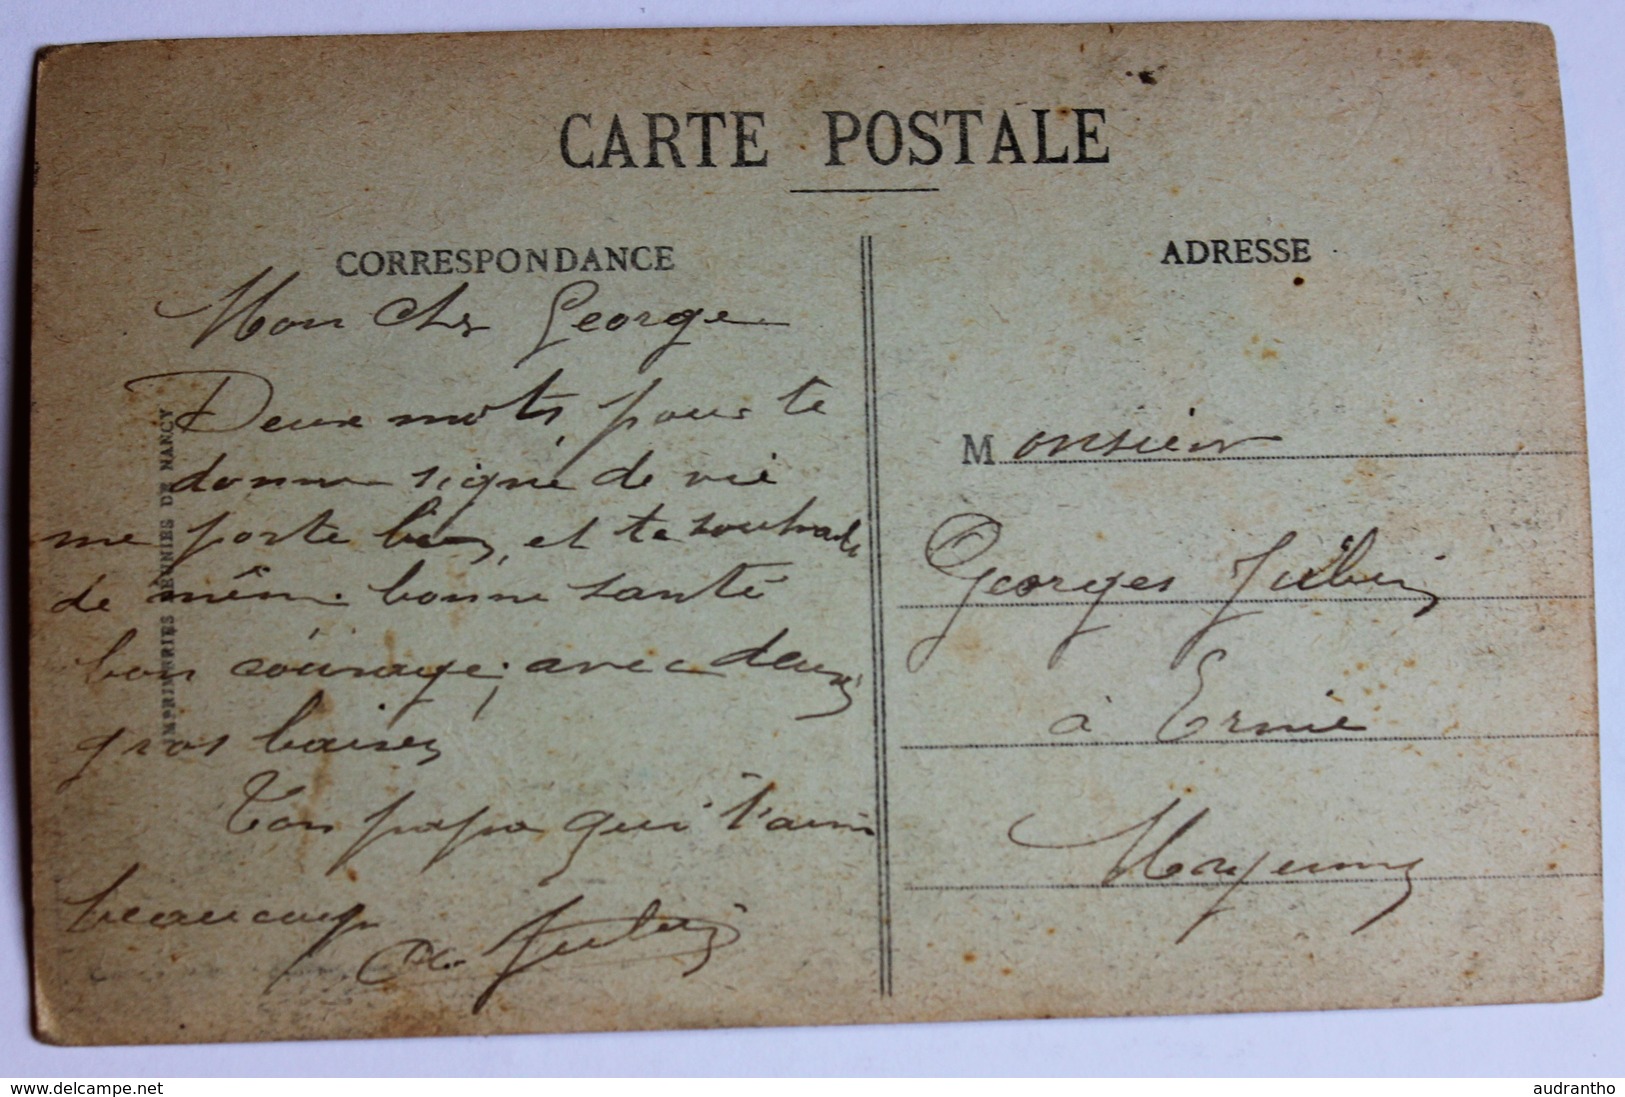 CARTE POSTALE
CORRESPONDANCE
Mon cher George
Deux mots pour te
donner signe de vie
me porte bien, et te souhaite
de même. bonne santé
bon courage, avec deux
gros baisers
Ton papa qui t'aime
beaucoup
Jubin
IMPRIMERIES REUNIES DE NANCY
ADRESSE
Monsieur
Georges Jubin
à Ernée
Mayenne
www.delcampe.net
audrantho